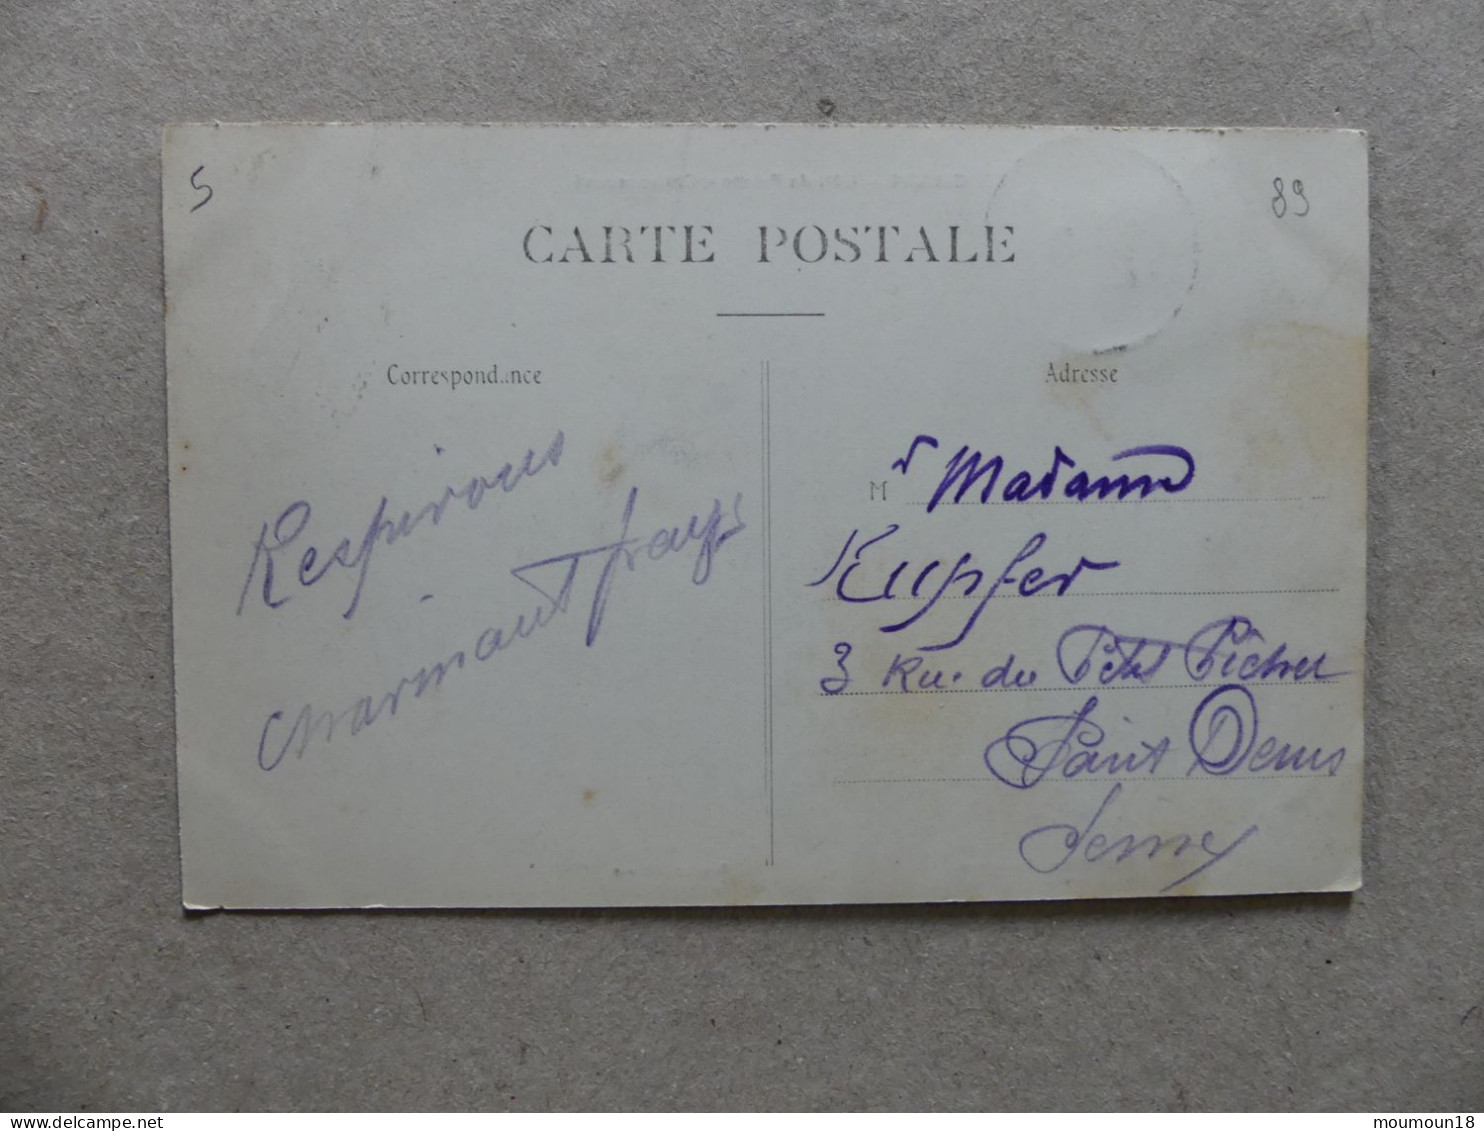 5
89
CARTE POSTALE
Correspondance
Adresse
Respirons
charmant pays
M r Madame
Kupfer
3 Rue du Petit Pichet
Saint Denis
Seine
moumoun18